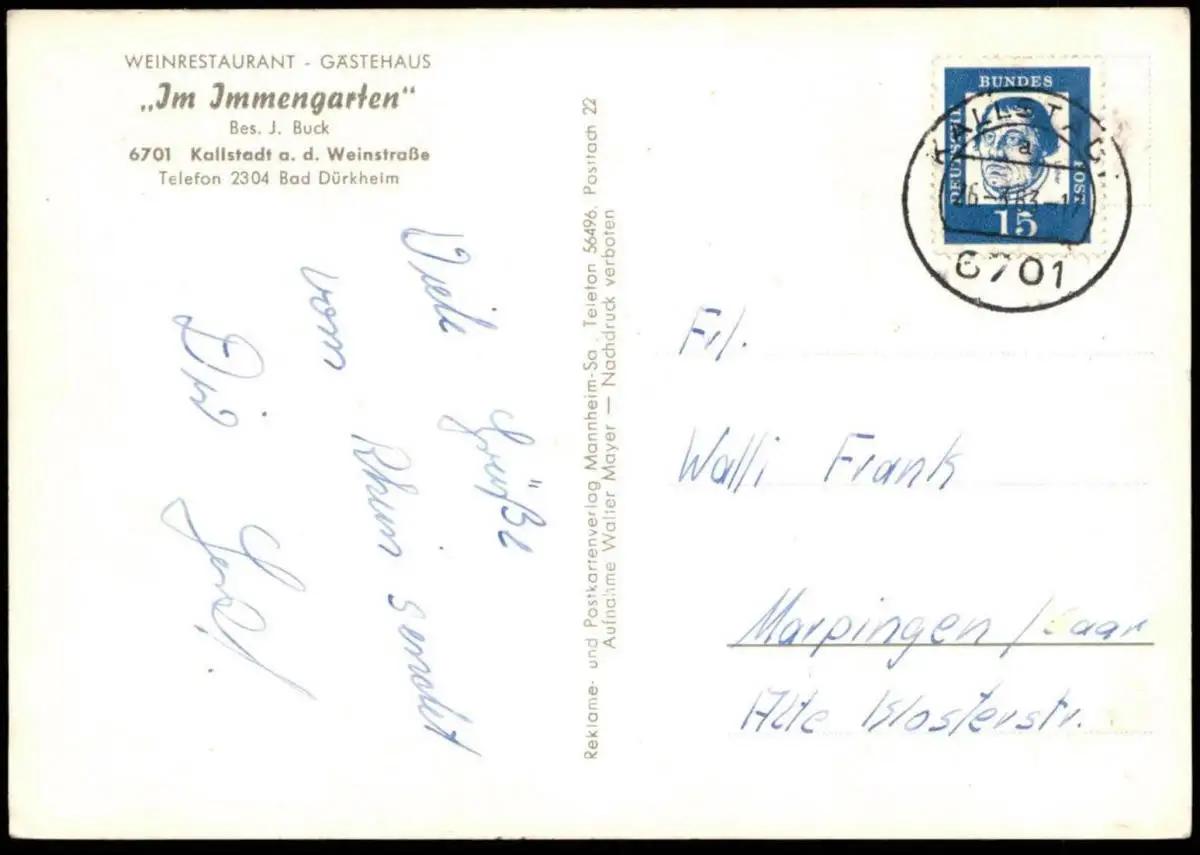 WEINRESTAURANT - GÄSTEHAUS
„Im Immengarten"
Bes. J. Buck
6701 Kallstadt a. d. Weinstraße
Telefon 2304 Bad Dürkheim
Viele Grüße
vom Rhein sendet
Dir
Reklame- und Postkartenverlag Mannheim-Sa. Telefon 56496, Postfach 22
Aufnahme Walter Mayer — Nachdruck verboten
DEUTSCHE
BUNDES
POST
15
KALLSTADT
a
26.-3.63-17
6701
Frl.
Walli Frank
Marpingen /Saar
Alte Klosterstr.